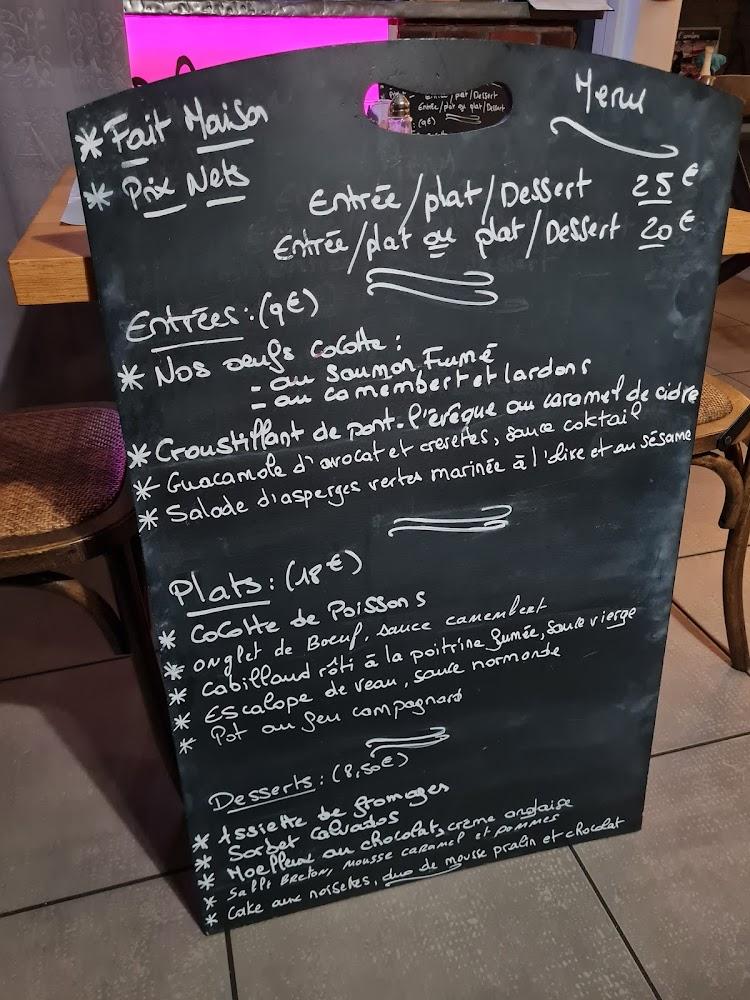 * Fait Maison
* Prix Nets
Menu
Entrée/plat/Dessert 25€
Entrée/plat ou plat/Dessert 20€
Entrées: (9€)
* Nos oeufs cocotte :
- au saumon Fumé
- au camembert et lardons
* Croustillant de pont-l'évêque au caramel de cidre
* Guacamole d'avocat et crevettes, sauce coktail
* Salade d'asperges vertes marinée à l'olive et au sésame
Plats: (18€)
* Cocotte de Poissons
* onglet de Boeuf, sauce camembert
* Cabillaud rôti à la poitrine fumée, sauce vierge
* Escalope de veau, sauce normande
* Pot au feu campagnard
Desserts: (8,50€)
* Assiette de fromages
* Sorbet calvados
* Moelleux au chocolat, crème anglaise
* Sablé Breton, mousse caramel et pommes
* Cake aux noisettes, duo de mousse pralin et chocolat